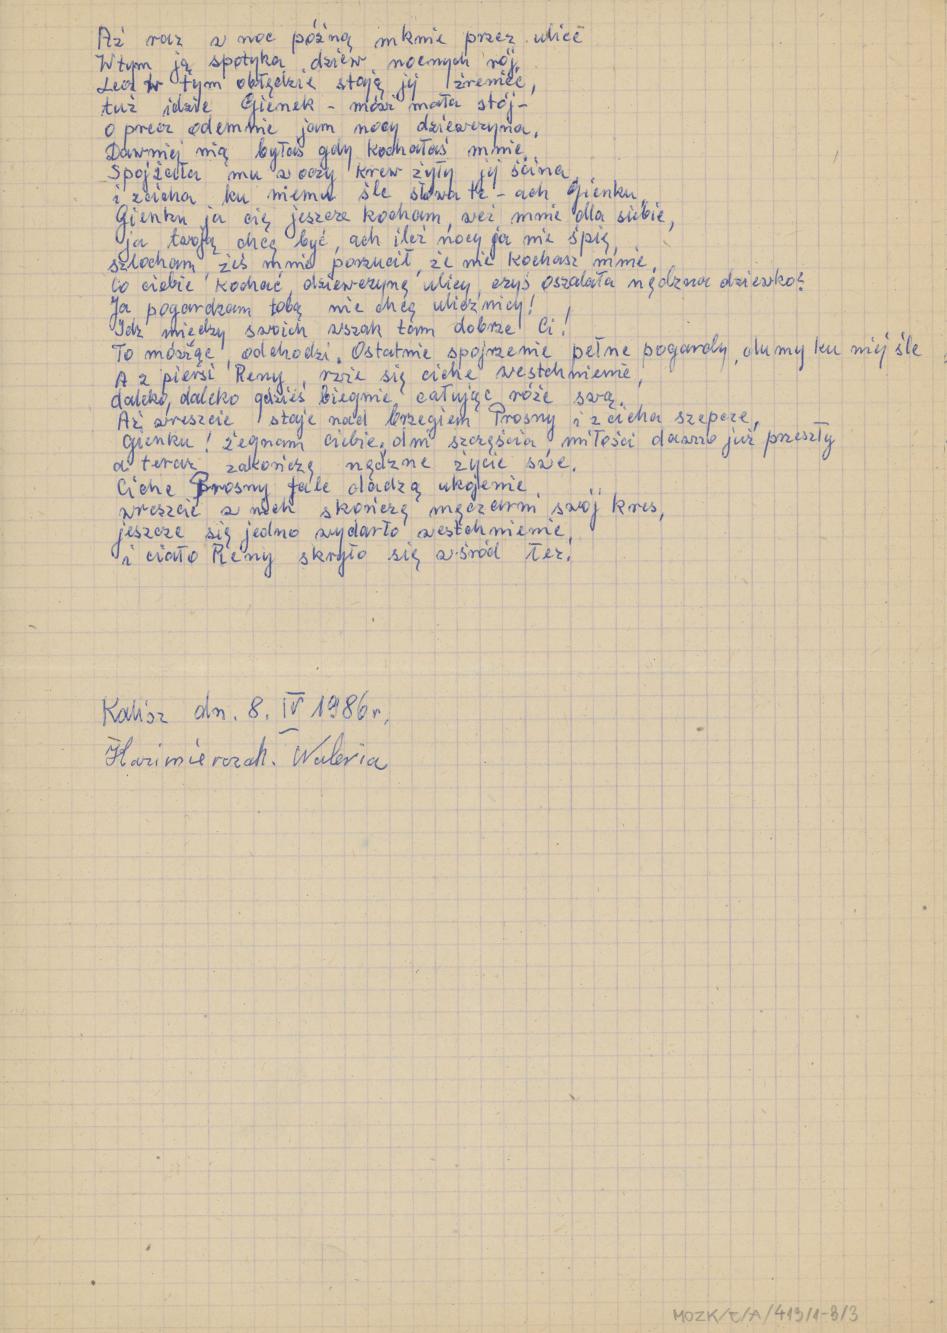 Aż raz w noc późną mknie przez ulicē
Wtym ją spotyka dziew nocnych rój,
Lecz w tym obłędzie stają jej źrenice,
tuż idzie Gienek - mówi mała stój-
o precz odemnie jam nocy dziewczyna,
Dawniej nią byłaś gdy kochałaś mnie.
Spojżała mu w oczy krew żyły jej ścina,
i zcicha ku niemu śle słowa te - ach Gienku,
Gienku ja cię jeszcze kocham, weź mnie dla siebie,
ja twoją chcę być, ach ileż nocy ja nie śpię,
szlocham, żeś mnie porzucił, że nie kochasz mnie,
Co ciebie kochać, dziewczynę ulicy, czyś oszalała nędzna dziewko?
Ja pogardzam tobą nie chcę ulicznicy!
Idź między swoich wszak tam dobrze Ci!
To mówiąc, odchodzi. Ostatnie spojrzenie pełne pogardy, dumy ku niej śle
A z piersi Reny, rwie się ciche westchnienie,
daleko, daleko gdzieś biegnie całując róże swą.
Aż wreszcie staje nad brzegiem Prosny i zcicha szepcze,
Gienku! żegnam ciebie, dni szczęścia miłości dawno już przeszły
a teraz zakończę nędzne życie swe.
Ciche Prosny fale dadzą ukojenie,
wreszcie w nich skończą męczarni swój kres,
jeszcze się jedno wydarło westchnienie,
i ciało Reny skryło się wśród łez.
Kalisz dn. 8. IV 1986r.
Kazimierczak. Waleria
MOZK/E/A/419/1-3/3